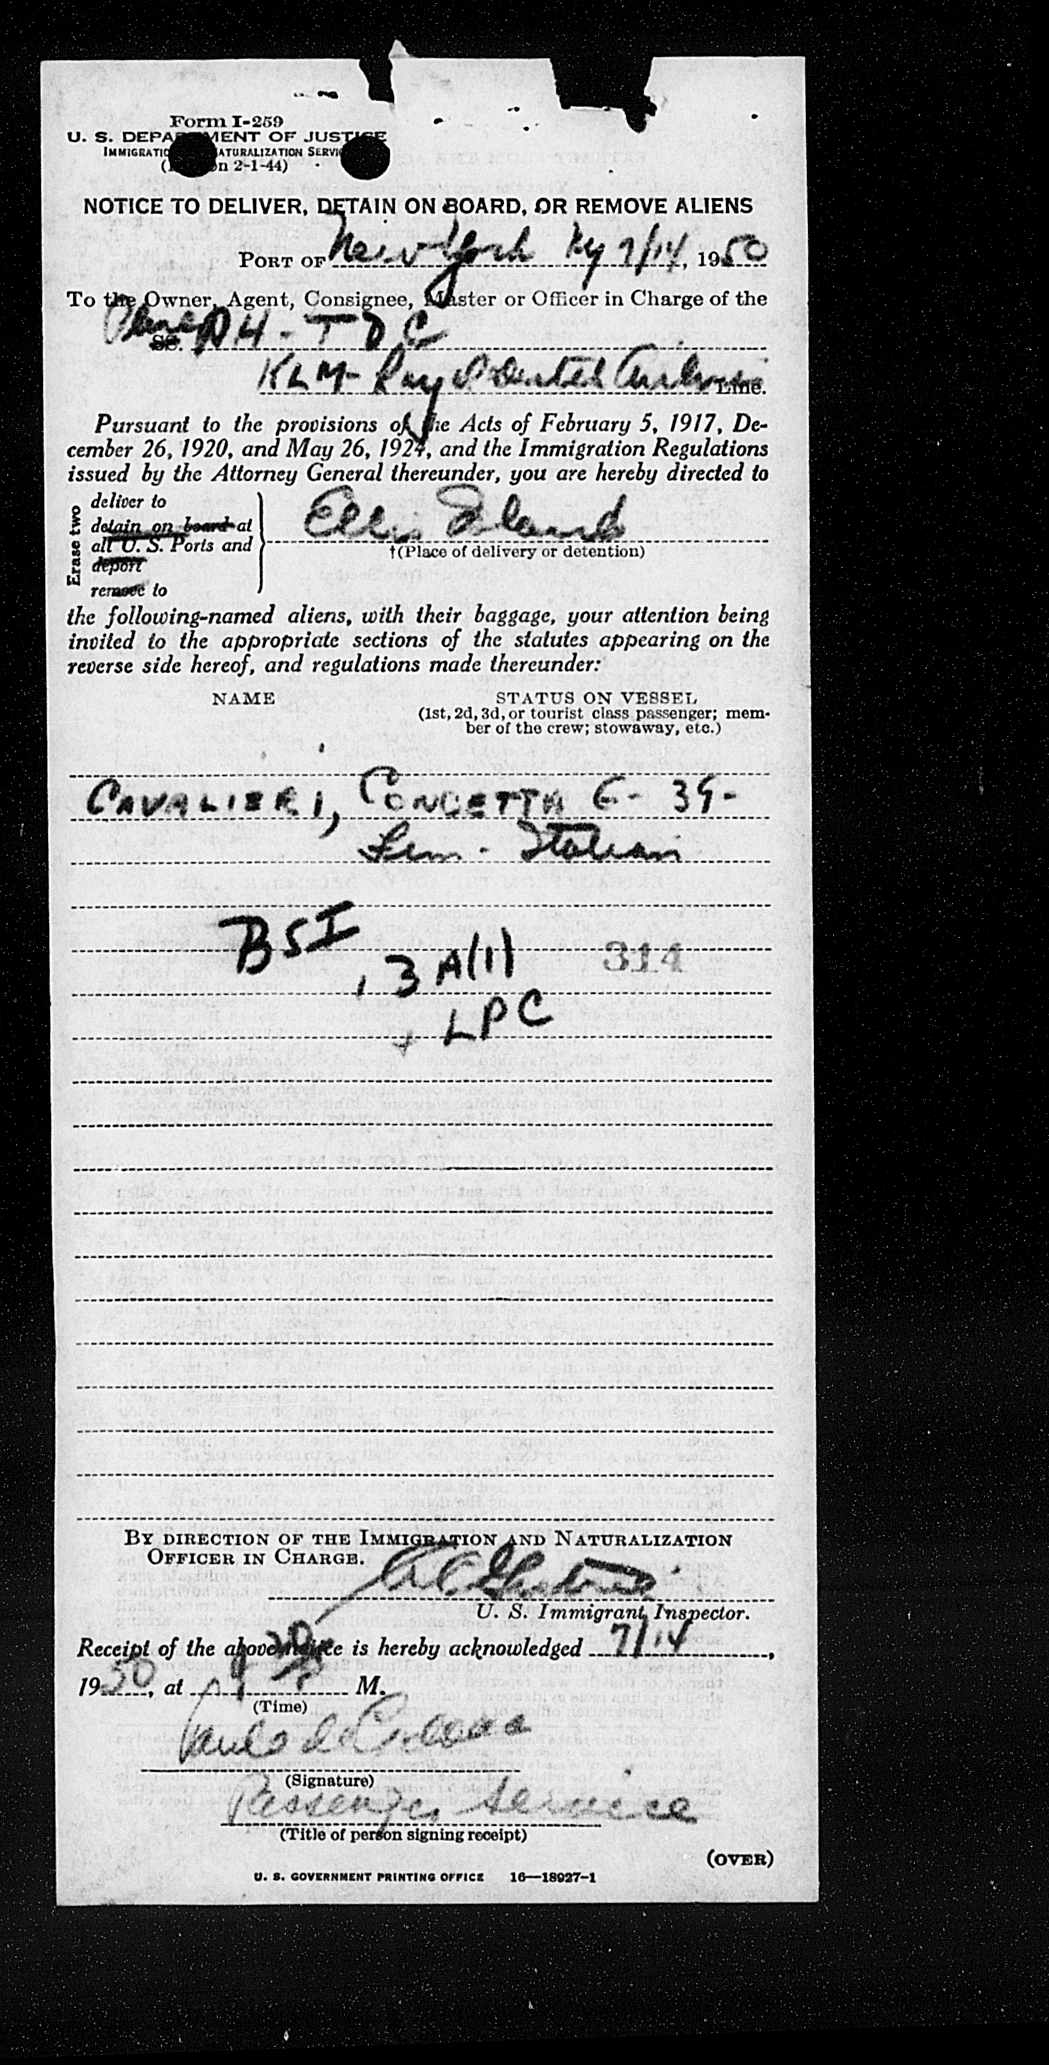 Form I-259
U. S. DEPARTMENT OF JUSTICE
IMMIGRATION NATURALIZATION SERVICE
n 2-1-44)
NOTICE TO DELIVER, DETAIN ON BOARD, OR REMOVE ALIENS
PORT OF New York Ny 7/14, 1950
To the Owner, Agent, Consignee, Master or Officer in Charge of the
Plane PH-TDC
SS.
KLM- Royal Dutch Airlines Line.
Pursuant to the provisions of the Acts of February 5, 1917, De-
cember 26, 1920, and May 26, 1924, and the Immigration Regulations
issued by the Attorney General thereunder, you are hereby directed to
Erase two
deliver to
detain on board at
all U. S. Ports and
deport
remove to
Ellis Island
†(Place of delivery or detention)
the following-named aliens, with their baggage, your attention being
invited to the appropriate sections of the statutes appearing on the
reverse side hereof, and regulations made thereunder:
NAME STATUS ON VESSEL
(1st, 2d, 3d, or tourist class passenger; mem-
ber of the crew; stowaway, etc.)
CAVALIERI, CONCETTA G- 39-
Fem - Italian
BSI
, 3 A(1) 314
+ LPC
BY DIRECTION OF THE IMMIGRATION AND NATURALIZATION
OFFICER IN CHARGE.
U. S. Immigrant Inspector.
Receipt of the above notice is hereby acknowledged 7/14,
1950, at M.
(Time)
(Signature)
Passenger Service
(Title of person signing receipt)
(OVER)
U. S. GOVERNMENT PRINTING OFFICE 16—18927-1